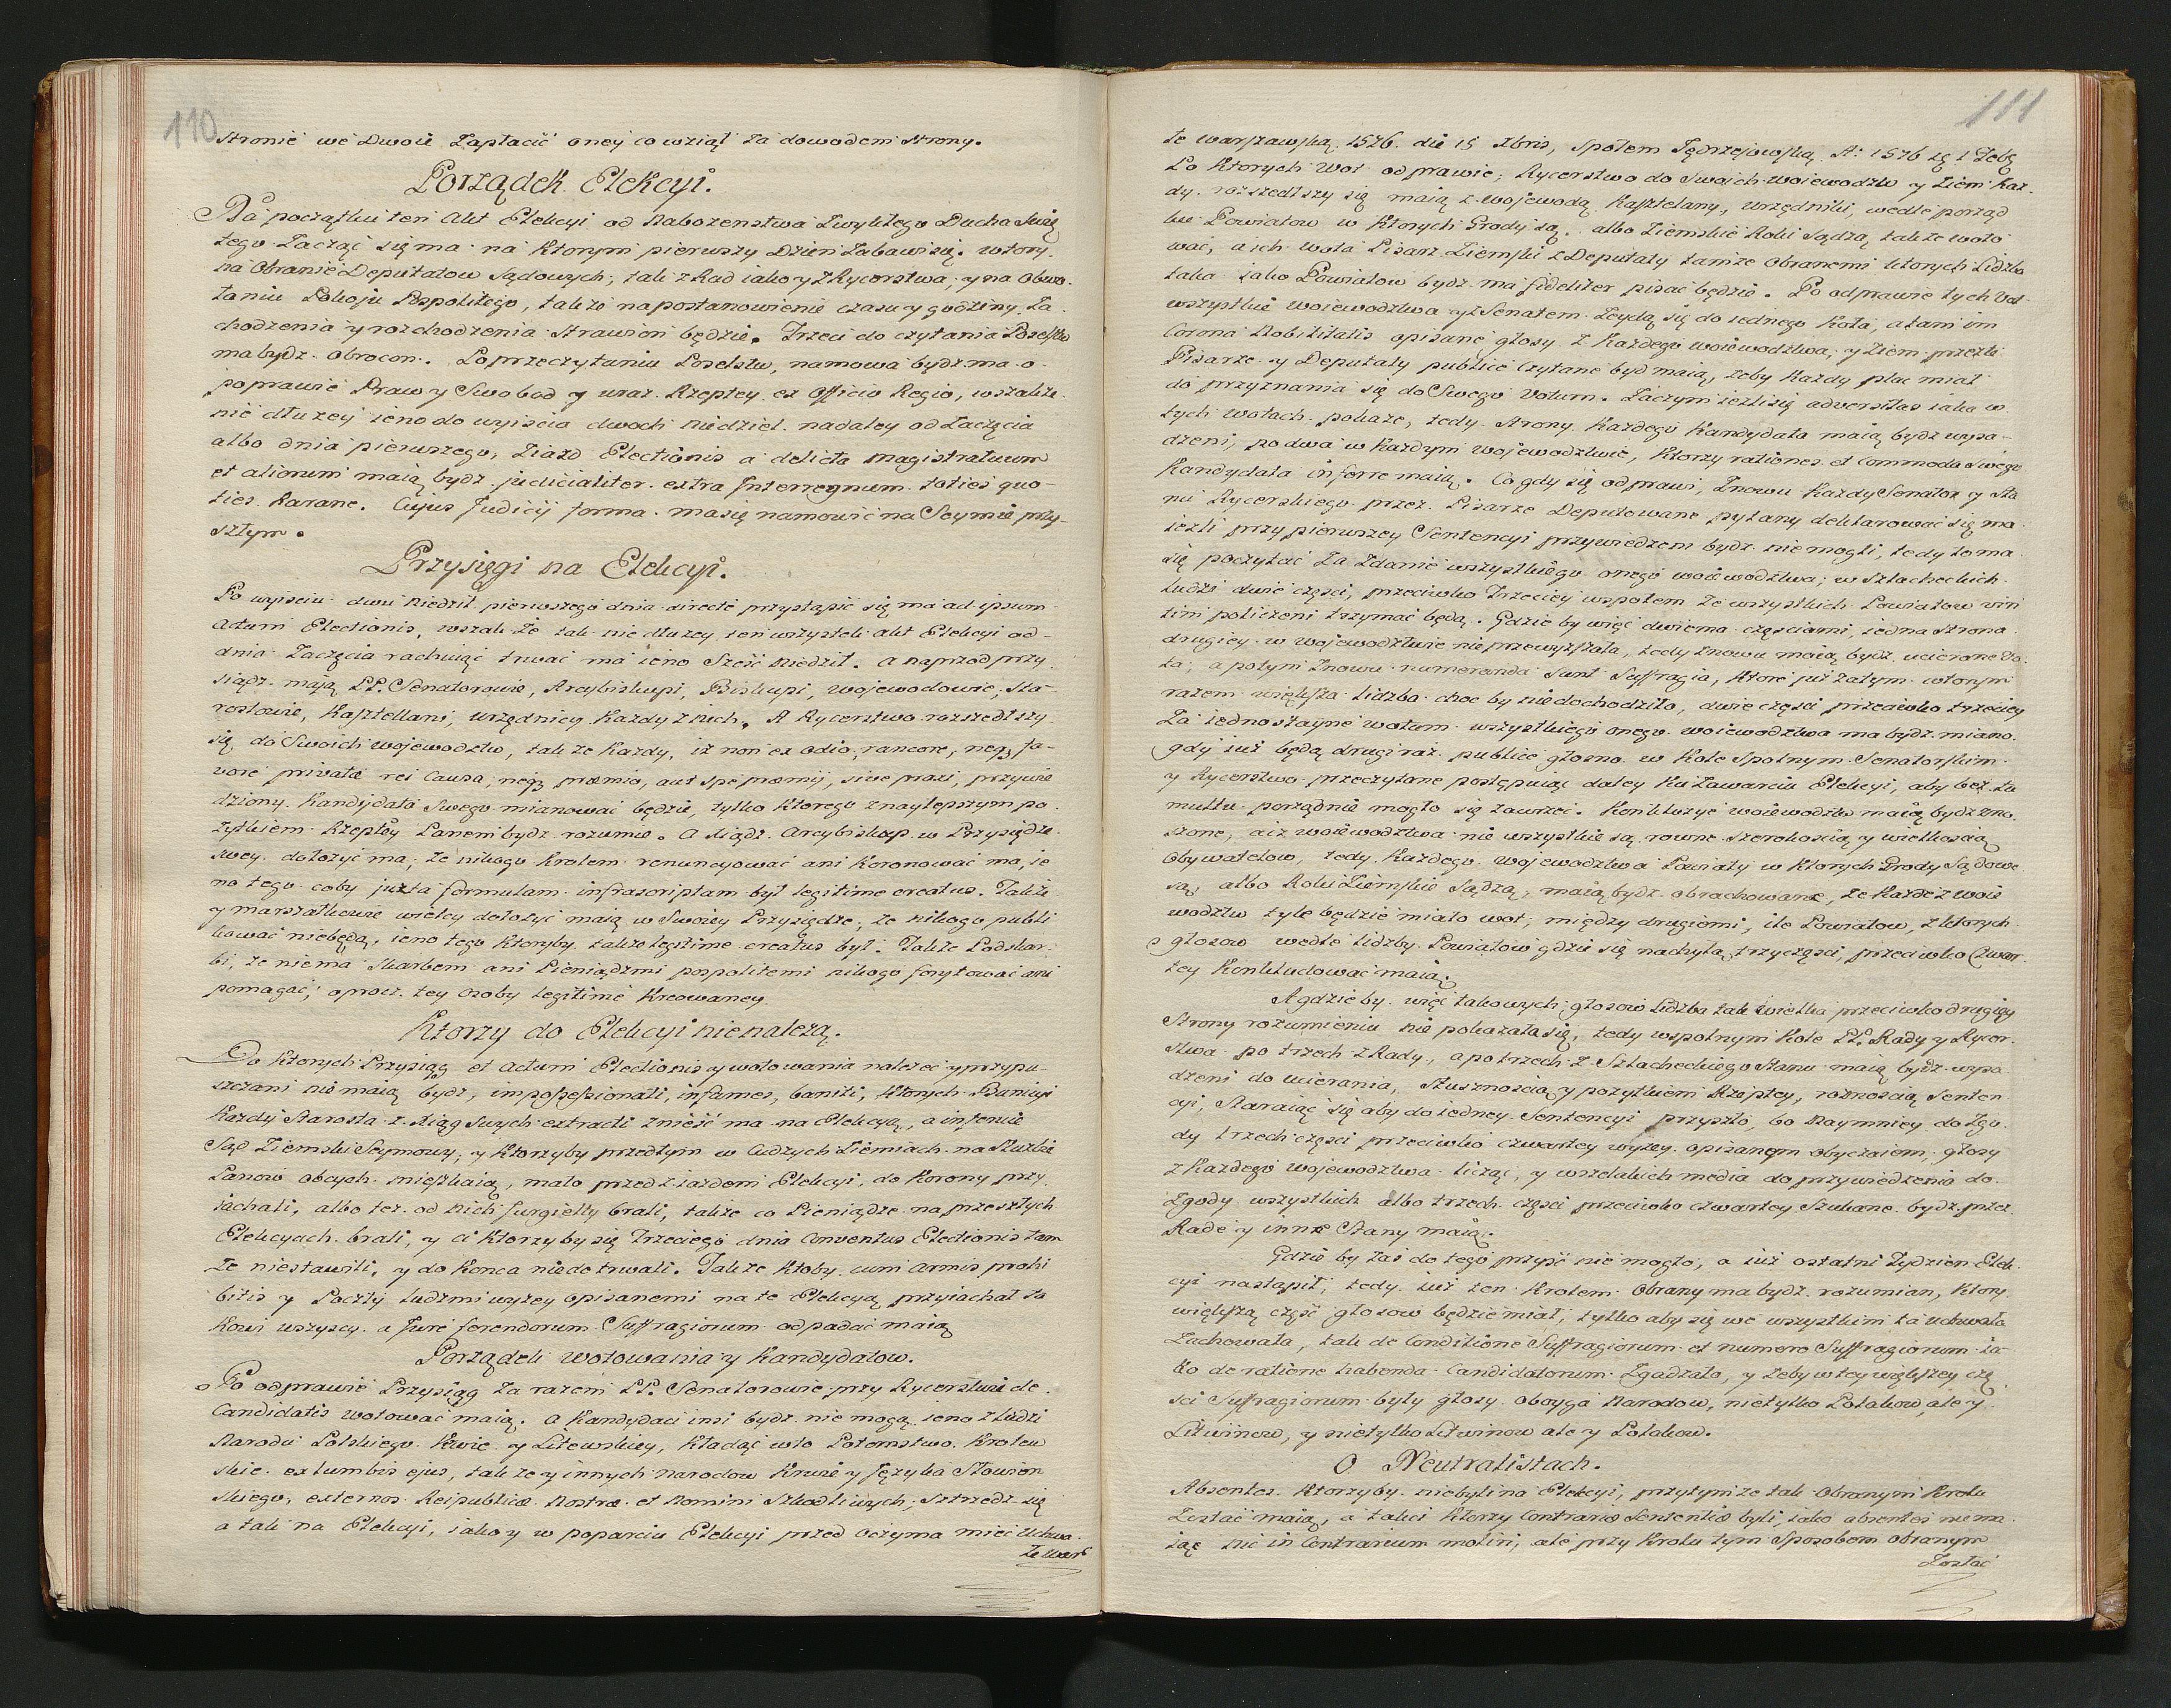 110
Stronie we Dwoie Zapłacić oney co wziął Za dowodem Strony.
Porządek Elekcyi.
Na początku ten Akt Elekcyi od Nabozenstwa Zwykłego Ducha Swię
tego Zacząć się ma na Ktorym pierwszy Dzien Zabawi się. wtory
na Obranie Deputatow Sądowych, tak z Rad iako y z Rycerstwa, y na Obwo-
łaniu Pokoju Pospolitego, także na postanowienie czasu y godziny Za
chodzenia y rozchodzenia Strawion będzie. Trzeci do czytania Poselstw
ma bydz obrocon. Po przeczytaniu Poselstw, namowa bydz ma o
poprawie Praw y Swobod y uraz Rzeptey ex Officio Regio, wszakże
nie dłuzey ieno do wyiscia dwoch Niedziel nadaley od Zaczęcia
albo dnia pierwszego, Ziazd Electionis a delicta magistratuum
et aliorum maią bydz judicialiter extra Interregnum toties quo-
ties karane. Cujus Judicij forma ma się namowić na Seymie przy-
szłym.
Przysięgi na Elekcyi.
Po wyisciu dwu Niedziel pierwszego dnia directe przystąpić się ma ad ipsum
Actum Electionis, wszak Ze tak nie dłuzey ten wszystek akt Elekcyi od-
dnia Zaczęcia rachuiąc trwać ma ieno Sześć Niedziel. a naprzod przy
siądz mają PP. Senatorowie, Arcybiskupi, Biskupi, Wojewodowie, Sta-
rostowie, Kasztellani, urzędnicy Kazdy z nich. A Rycerstwo rozszedłszy
się do Swoich wojewodztw, tak Ze Kazdy, iz non ex odio, rancore, neq fa-
vore privatæ rei Causa, neq præmio, aut spe præmij, sive pravi, przywie
dziony Kandydata Swego mianować będzie, tylko Ktorego z naylepszym po
zytkiem Rzeptey Panem bydz rozumie. A Xiądz Arcybiskup w Przysiędze
swey dołozyć ma, Ze nikogo Krolem renuncyować ani Koronować ma, ie
no tego coby juxta formulam infrascriptam był legitime creatus. Także
y marszałkowie wielcy dołozyć maią w Swoiey Przysiędze, Ze nikogo publi
kować niebędą, ieno tego Ktoryby także legitime creatus był. Także Podskar-
bi, ze niema Skarbem ani Pieniądzmi pospolitemi nikogo forytować ani
pomagać, oprocz tey Osoby legitime Kreowaney
Ktorzy do Elekcyi nienalezą.
Do Ktorych Przysiąg et Actum Electionis y wotowania nalezeć y przypu-
szczani nie maią bydz, impossessionati, infames, banniti, Ktorych Bannicyi
Kazdy Starosta z Xiąg Swych extracti znieść ma na Elekcyą, a infamie
Sąd Ziemski Seymowy, y Ktorzyby przedtym w Cudzych Ziemiach na Służbie
Panow obcych mieszkaią, mało przed ziazdem Elekcyi, do Korony przy
iachali, albo tez od nich jurgielty brali, także co Pieniądze na przeszłych
Elekcyach brali, y ci Ktorzyby się Trzeciego dnia Conventus Electionis tam
ze niestawili, y do Konca niedotrwali. Także Ktoby cum armis prohi
bitis y Poczty ludzmi wyzey opisanemi na te Elekcyą przyiachał ta
kowi wszyscy a Jure ferendorum Suffragiorum odpadać maią
Porządek wotowania y Kandydatow.
Po odprawie Przysiąg Za razem PP. Senatorowie przy Rycerstwie de
Candidatis wotować maią. a Kandydaci insi bydz nie mogą ieno z ludzi
Narodu Polskiego Krwie y Litewskiey, Kładąc w to Potomstwo Krolew
skie ex lumbis ejus, tak ze y innych Narodow Krwie y Języka Słowien
skiego, externos Reipublicæ Nostræ et Nomini Szkodliwych, Sztrzedz się
a tak na Elekcyi, iako y w poparciu Elekcyi przed Oczyma mieć Uchwa-
Te War
111
te warszawską 1576 die 15 Xbris, Społem Jędrzejowską A: 1576 1
Po Ktorych Wot odprawie, Rycerstwo do Swoich Woiewodztw y Ziem Kaz-
dy rozszedłszy się maią z Wojewodą Kasztelany, urzędniki, wedle porząd
ku Powiatow w Ktorych Grody są, albo Ziemskie Roki Sądzą także woto
wać, a ich wota Pisarz Ziemski z Deputaty tamże obranemi ktorych Lidzba
taka iako Powiatow bydz ma fideliter pisać będzie. Po odprawie tych Wot
wszystkie woiewodztwa y z Senatem Zeydą się do iednego Koła, a tam im
Corona Nobilitatis opisane głosy z Kazdego Woiewodztwa, y Ziem przez te
Pisarze y Deputaty publice czytane bydz maią, zeby Kazdy plac miał
do przyznania się do Swego Votum. Zaczym iezli się adversitas iaka w
tych wotach pokaze, tedy Strony Kazdego Kandydata maią bydz wysa-
dzeni, po dwa w Kazdym Wojewodztwie, Ktorzy rationes et Commoda Swego
Kandydata inferre maią. Co gdy się odprawi, Znowu Kazdy Senator y Sta
nu Rycerskiego przez Pisarze Deputowane pytany deklarować się ma
iezli przy pierwszey Sentencyi przywiedzeni bydz nie mogli, tedy to ma
się poczytać Za Zdanie wszystkiego onego woiewodztwa, w Szlacheckich
ludzi dwie części, przeciwko Trzeciey wspołem Ze wszystkich Powiatow viri
tim policzeni trzymać będą. Gdzie by więc dwiema częsciami, iedna Strona
drugiey w Wojewodztwie nie przewyzszała, tedy znowu maią bydz ucierane Vo-
ta, a potym Znowu numeranda sunt Suffragia, Ktore już zatym wtorym
razem większa lidzba choc by niedochodziło, dwie części przeciwko trzeciey
Za iednostayne wotum wszystkiego onego woiewodztwa ma bydz miano.
gdy już będą drugi raz publice głosno w Kole Spolnym Senatorskim
y Rycerstwa przeczytane postępuiąc daley Ku Zawarciu Elekcyi, aby bez tu
multu porządnie mogło się zawrzeć. Konkluzye woiewodztw maią bydz zno
szone, a iz woiewodztwa nie wszystkie są rowne szerokoscią y wielkoscią
Obywatelow, tedy Kazdego Wojewodztwa Powiaty w Ktorych Grody Sądowe
są, albo Roki Ziemskie Sądzą, maią bydz obrachowane, ze Kazde z woie
wodztw tyle będzie miało wot, między drugiemi, ile Powiatow, z ktorych
głosow wedle lidzby Powiatow gdzie się nachylą trzy części, przeciwko Czwar
tey Konkludować maią.
A gdzie by więc takowych głosow Lidzba tak wielka przeciwko drugiey
Strony rozumieniu nie pokazała się, tedy wspolnym Kole PP. Rady y Rycer-
stwa po trzech z Rady, a po trzech z Szlacheckiego Stanu maią bydz wysa
dzeni do ucierania, Słusznoscią y pozytkiem Rzeptey, roznoscią Senten
cyi, Staraiąc się aby do iedney Sentencyi przyszło, bo Naymniey do Zgo-
dy trzech części przeciwko czwartey wyzey opisanym obyczaiem, głosy
z Kazdego Wojewodztwa licząc, y wszelakich media do przywiedzenia do
Zgody wszystkich albo trzech części przeciwko czwartey Szukane bydz przez
Rade y inne Stany maią.
Gdzie by Zaś do tego przyść nie mogło, a iuż ostatni Tydzien Elek
cyi nastąpił, tedy iuż ten Krolem Obrany ma bydz rozumian, Ktory
większą część głosow będzie miał, tylko aby się we wszystkim ta uchwała
Zachowała, tak de Conditione Suffragiorum et numero Suffragiorum ia-
ko de ratione habenda Candidatorum Zgadzało, y Zeby w tey większey czę
sci Suffragiorum były głosy oboyga Narodow, nietylko Polakow, ale y
Litwinow, y nietylko Litwinow ale y Polakow.
O Neutralistach.
Absentes Ktorzyby niebyli na Elekcyi, przytymże tak Obranym Krolu
Zostać maią, a także Ktorzy Contrariæ Sententiæ byli, iako absentes nie ma
iąc nic in Contrarium moliri, ale przy Krolu tym Sposobem obranym
Zostać